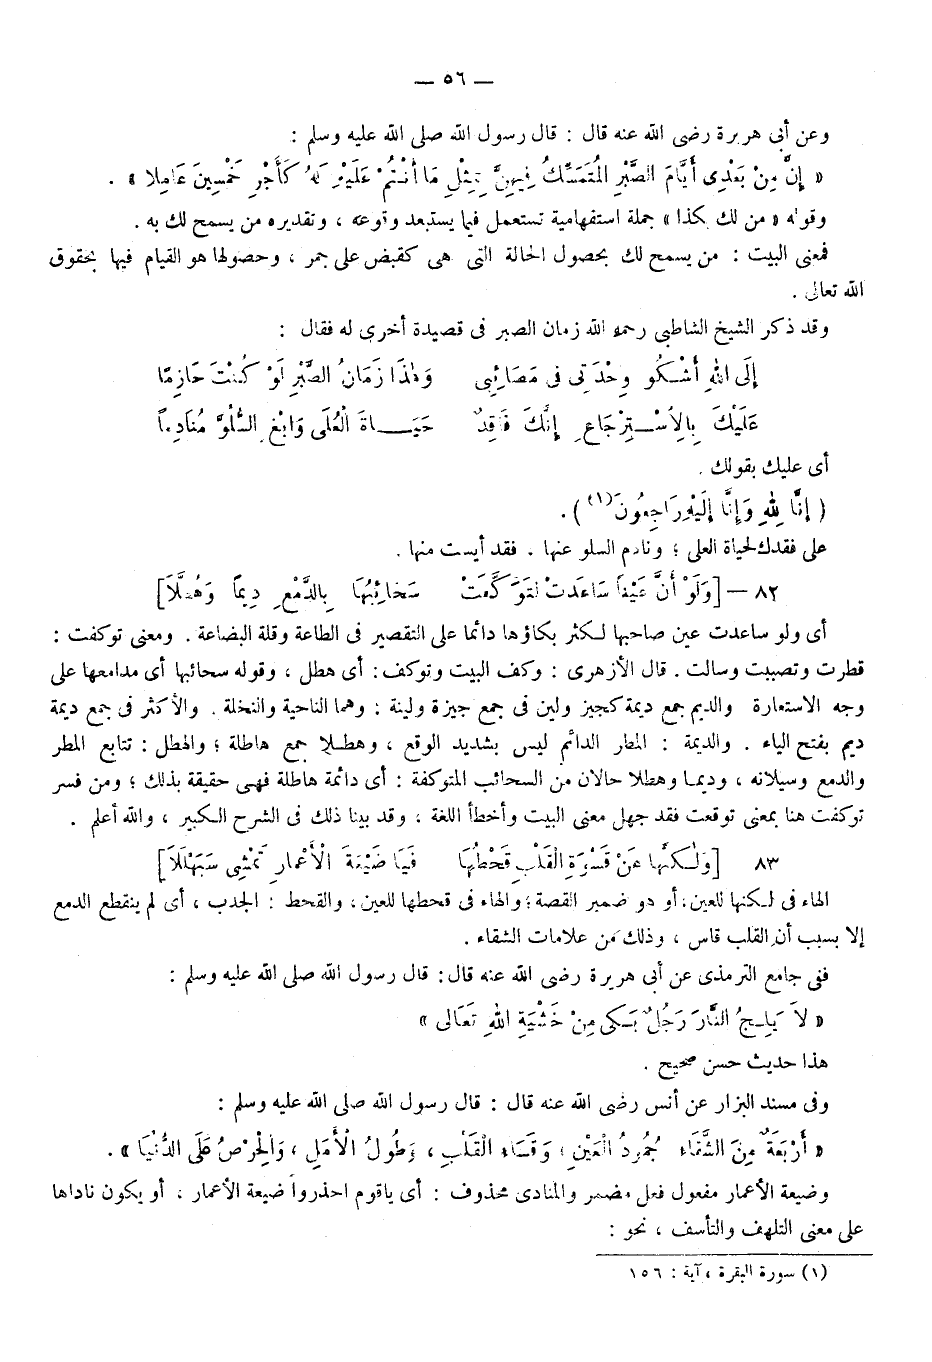 — ٥٦ —
وعن أبى هريرة رضى الله عنه قال : قال رسول الله صلى الله عليه وسلم :
« إِنَّ مِنْ بَعْدِى أَيَّامَ الصَّبْرِ الْمُتَمَسِّكُ فِيهِنَّ بِمِثْلِ مَا أَنْتُمْ عَلَيْهِ لَهُ كَأَجْرِ خَمْسِينَ عَامِلا » .
وقوله « من لك بكذا » جملة استفهامية تستعمل فيما يستبعد وقوعه ، وتقديره من يسمح لك به .
فمعنى البيت : من يسمح لك بحصول الحالة التى هى كقبض على جمر ، وحصولها هو القيام فيها بحقوق
الله تعالى .
وقد ذكر الشيخ الشاطبى رحمه الله زمان الصبر فى قصيدة أخرى له فقال :
إِلَى اللهِ أَشْكُو وِحْدَتِى فى مَصَائِبِى وَهٰذَا زَمَانُ الصَّبْرِ لَوْ كُنْتَ حَازِمًا
عَلَيْكَ بِالِاسْتِرْجَاعِ إِنَّكَ فَاقِدٌ حَيَاةَ الْعُلَى وَابْغِ السُّلُوَّ مُنَادِماً
أى عليك بقولك .
( إِنَّا لِلّٰهِ وَإِنَّا إِلَيْهِ رَاجِعُونَ (١) ) .
على فقدك لحياة العلى ؛ ونادم السلو عنها . فقد أيست منها .
٨٢ – [وَلَوْ أَنَّ عَيْناً سَاعَدَتْ لَتَوَكَّفَتْ سَحَائِبُهَا بِالدَّمْعِ دِيماً وَهُطَّلاَ]
أى ولو ساعدت عين صاحبها لكثر بكاؤها دائما على التقصير فى الطاعة وقلة البضاعة . ومعنى توكفت :
قطرت وتصببت وسالت . قال الأزهرى : وكف البيت وتوكف : أى هطل ، وقوله سحائبها أى مدامعها على
وجه الاستعارة والديم جمع ديمة كجيز ولين فى جمع جيزة ولينة : وهما الناحية والنخلة . والأكثر فى جمع ديمة
ديم بفتح الياء . والديمة : المطر الدائم ليس بشديد الوقع ، وهطلا جمع هاطلة ؛ والهطل : تتابع المطر
والدمع وسيلانه ، وديما وهطلا حالان من السحائب المتوكفة : أى دائمة هاطلة فهى حقيقة بذلك ؛ ومن فسر
توكفت هنا بمعنى توقعت فقد جهل معنى البيت وأخطأ اللغة ، وقد بينا ذلك فى الشرح الكبير ، والله أعلم .
٨٣ [وَلٰكِنَّهَا عَنْ قَسْوَةِ الْقَلْبِ قَحْطُهَا فَيَا ضَيْعَةَ الْأَعْمَارِ تَمْشِى سَبَهْلَلاَ]
الهاء فى لكنها للعين، أو هو ضمير القصة ؛ والهاء فى قحطها للعين، والقحط : الجدب ، أى لم ينقطع الدمع
إلا بسبب أن القلب قاس ، وذلك من علامات الشقاء .
ففى جامع الترمذى عن أبى هريرة رضى الله عنه قال : قال رسول الله صلى الله عليه وسلم :
« لاَ يَلِجُ النَّارَ رَجُلٌ بَكَى مِنْ خَشْيَةِ اللهِ تَعَالى »
هذا حديث حسن صحيح .
وفى مسند البزار عن أنس رضى الله عنه قال : قال رسول الله صلى الله عليه وسلم :
« أَرْبَعَةٌ مِنَ الشَّقَاءِ جُمُودُ الْعَيْنِ ، وَقَسَاءُ الْقَلْبِ ، وَطُولُ الْأَمَلِ ، وَالْحِرْصُ عَلَى الدُّنْيَا » .
وضيعة الأعمار مفعول فعل مضمر والمنادى محذوف : أى ياقوم احذروا ضيعة الأعمار ، أو يكون ناداها
على معنى التلهف والتأسف ، نحو :
(١) سورة البقرة ، آية : ١٥٦